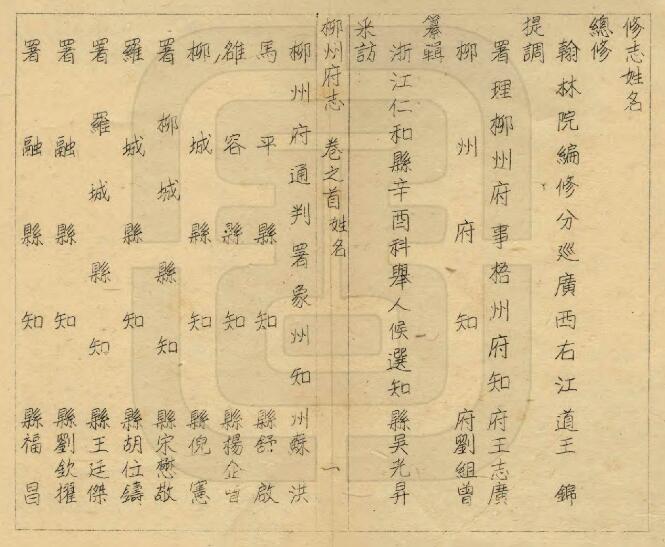 修志姓名
總修
翰林院編修分巡廣西右江道王錦
提調
署理柳州府事梧州府知府王志廣
柳州府知府劉組曾
纂輯
浙江仁和縣辛酉科舉人候選知縣吳光昇
采訪
柳州府志 卷之首 姓名 一
柳州府通判署象州知州蘇洪
馬平縣知縣舒啟
雒容縣知縣楊
柳城縣知縣倪憲
署柳城縣知縣宋懋敬
羅城縣知縣胡位鑄
署羅城縣知縣王廷傑
署融縣知縣劉欽擢
署融縣知縣福昌